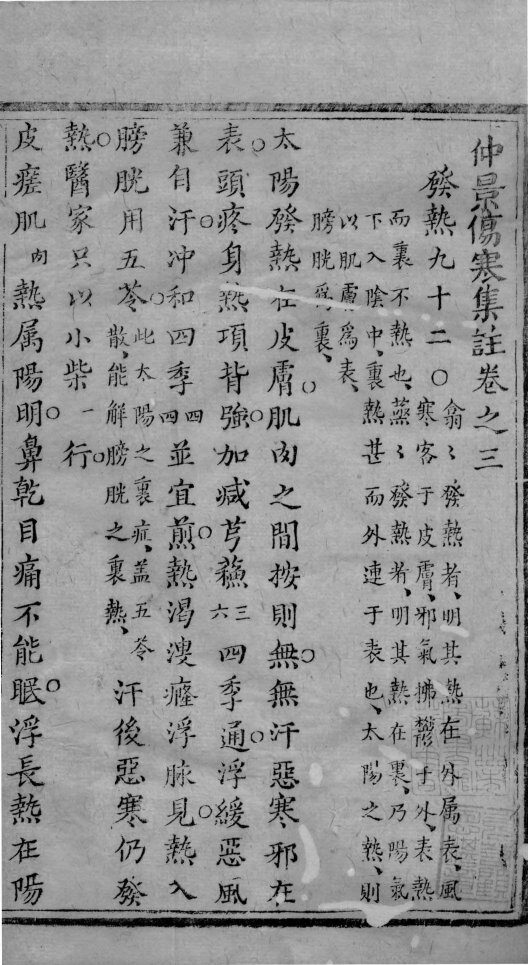 仲景傷寒集註卷之三
發熱九十二〇翕〻發熱者、明其熱在外属表、風
寒客于皮膚、邪氣拂鬱于外、表熱
而裏不熱也、蒸〻發熱者、明其熱在裏、乃陽氣
下入陰中、裏熱甚而外連于表也、太陽之熱、則
以肌膚爲表、
膀胱爲裏、
太陽發熱在皮膚肌肉之間按則無無汗惡寒邪在
表頭疼身熱項背強加减芎蘓三六四季通浮緩惡風
兼自汗冲和四季四四並宜煎熱渴溲癃浮脉見熱入
膀胱用五苓此太陽之裏症、盖五苓
散、能解膀胱之裏熱、汗後惡寒仍發
熱醫家只以小柴一行
皮瘥肌肉熱属陽明鼻乾目痛不能眠浮長熱在陽